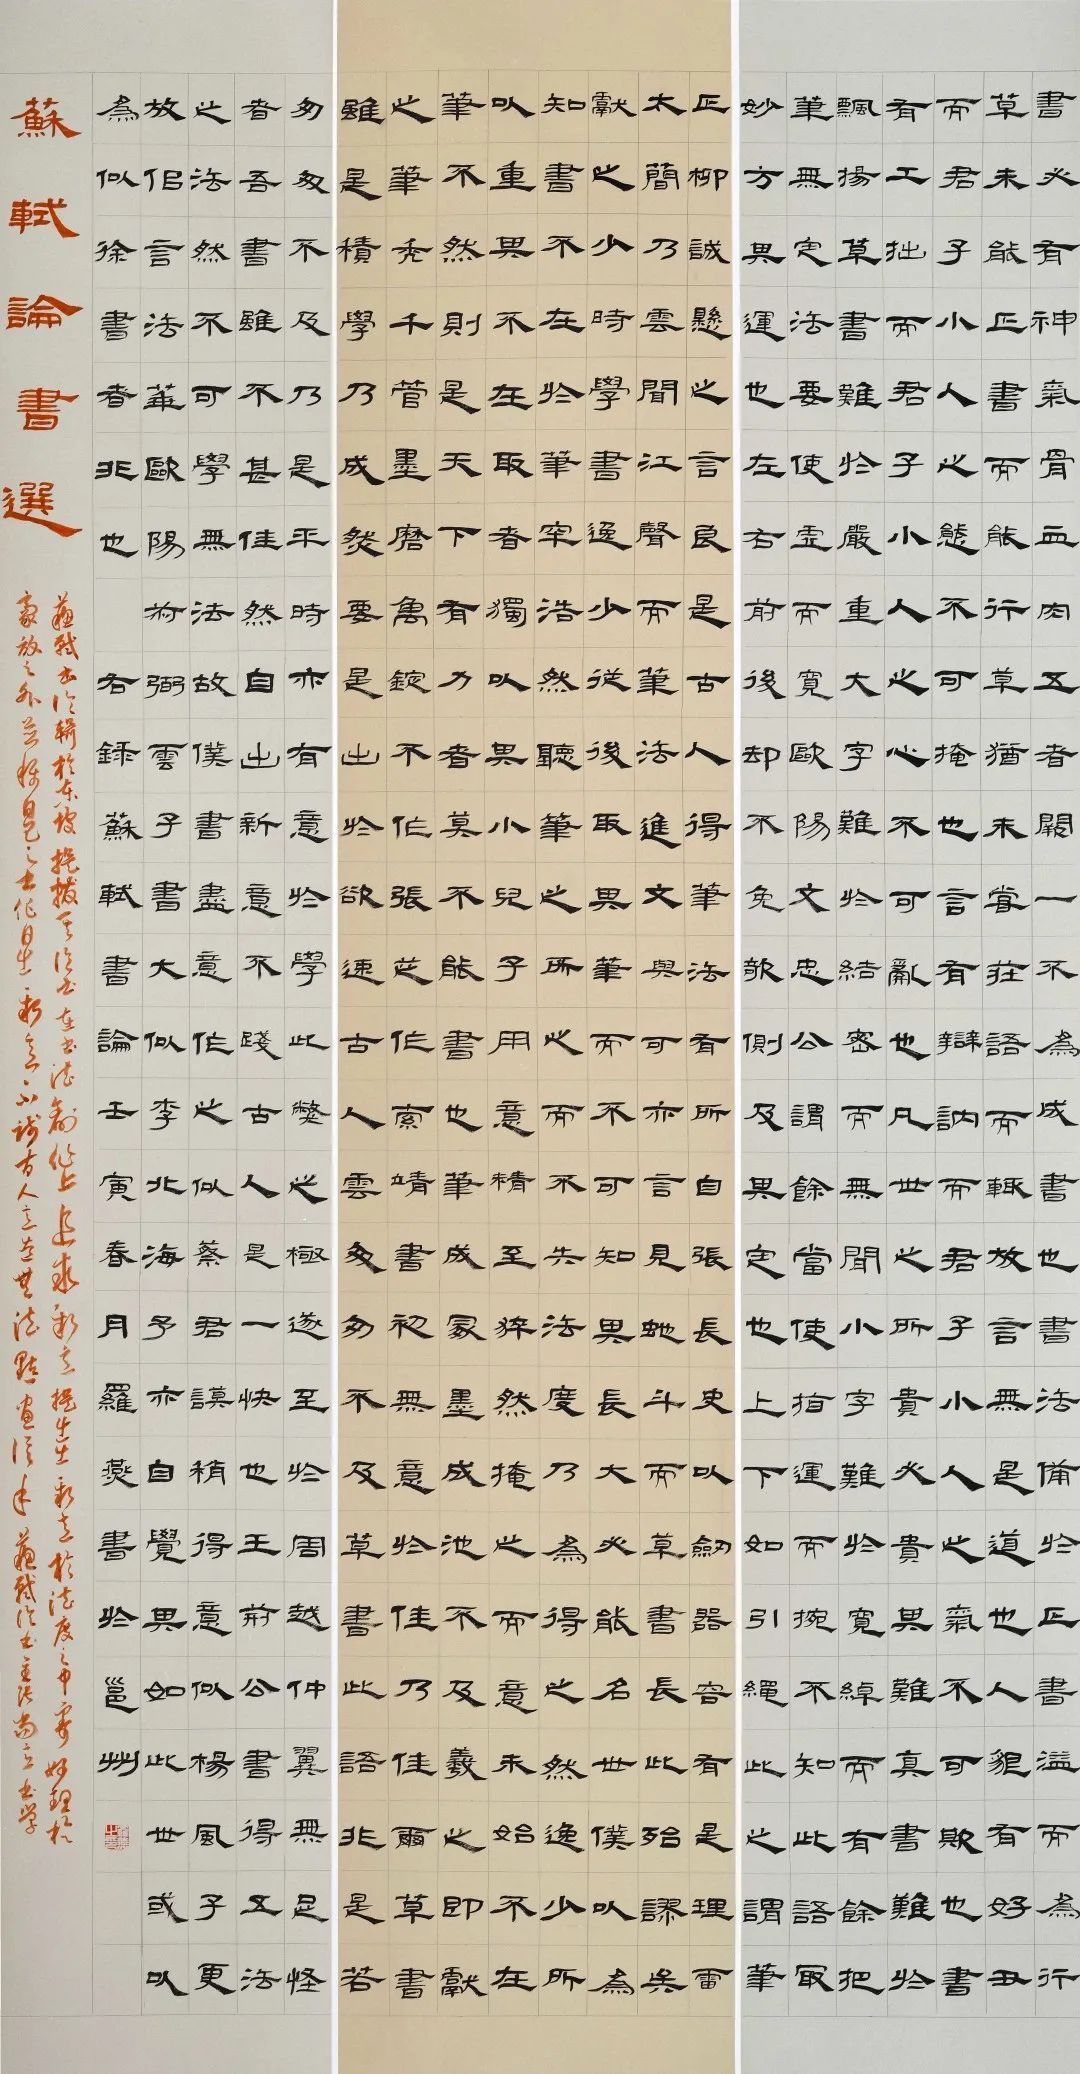 書必有神氣骨血肉五者闕一不為成書也書法備於正書溢而為行
草未能正書而能行草猶未嘗莊語而輒放言無是道也人貌有好丑
而君子小人之態不可掩也言有辯訥而君子小人之氣不可欺也書
有工拙而君子小人之心不可亂也凡世之所貴必貴其難真書難於
飄揚草書難於嚴重大字難於結密而無間小字難於寬綽而有餘把
筆無定法要使虛而寬歐陽文忠公謂餘當使指運而腕不知此語最
妙方其運也左右前後却不免欹側及其定也上下如引繩此之謂筆
正柳誠懸之言良是古人得筆法有所自張長史以劍器容有是理雷
太簡乃雲聞江聲而筆法進文與可亦言見蛇斗而草書長此殆謬矣
獻之少時學書逸少從後取其筆而不可知其長大必能名世僕以為
知書不在於筆牢浩然聽筆之所之而不失法度乃為得之然逸少所
以重其不在取者獨以其小兒子用意精至猝然掩之而意未始不在
筆不然則是天下有力者莫不能書也筆成冢墨成池不及羲之即獻
之筆禿千管墨磨萬錠不作張芝作索靖書初無意於佳乃佳爾草書
雖是積學乃成然要是出於欲速古人雲匆匆不及草書此語非是若
匆匆不及乃是平時亦有意於學此弊之極遂至於周越仲翼無足怪
者吾書雖不甚佳然自出新意不踐古人是一快也王荊公書得五法
之法然不可學無法故僕書盡意作之似蔡君謨稍得意似楊風子更
放佀言法華歐陽叔弼雲子書大似李北海予亦自覺其如此世或以
為似徐書者非也 右錄蘇軾書論壬寅春月羅燕書於邕州
蘇軾論書選
蘇軾書論輯於東坡題跋其論書在書法創作上追求新意提出出新意於法度之中寄妙理於
豪放之外自出新意不踐古人無法點畫信手蘇軾論書主張尚意書學